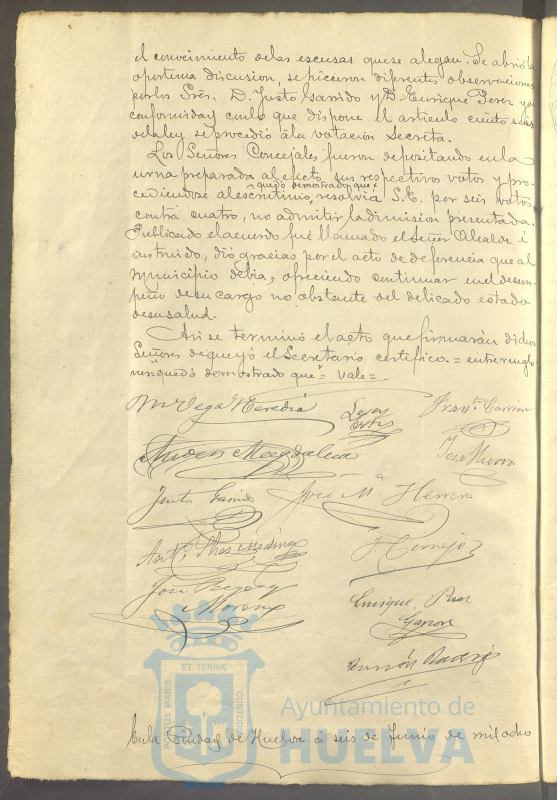 el conocimiento de las escusas que se alegan. Se abrió la
oportuna discusion, se hicieron diferentes observaciones
por los Sres. D. Justo Garrido y D. Enrique Perez y de
conformidad con lo que dispone el articulo ciento seis
de la ley se procedió á la votacion secreta.
Los Señores Concejales fueron depositando en la
urna preparada al efecto sus respectivos votos y pro-
quedó demostrado que
cediendose al escrutinio, resolvia S.E. por seis votos
contra cuatro, no admitir la dimision presentada.
Publicado el acuerdo fué llamado el Señor Alcalde é
instruido, dió gracias por el acto de deferencia que al
Municipio debia, ofreciendo continuar en el desem-
peño de su cargo no obstante del delicado estado
de su salud.
Asi se terminó el acto que firmarán dichos
Señores de que yo el Secretario certifico. = entre renglo
nes = quedó demostrado que = vale =
M Vega Heredia
Fran.co Garrion
Magdalena
Justo Garrido
José M.a Herrera
Ant.o
J Cornejo
José
Moreno
Enrique Perez
Ramón
ET TERRA
PORTUS MARIS
CUSTODIA
Ayuntamiento de
HUELVA
En la Ciudad de Huelva a seis de Junio de mil ocho